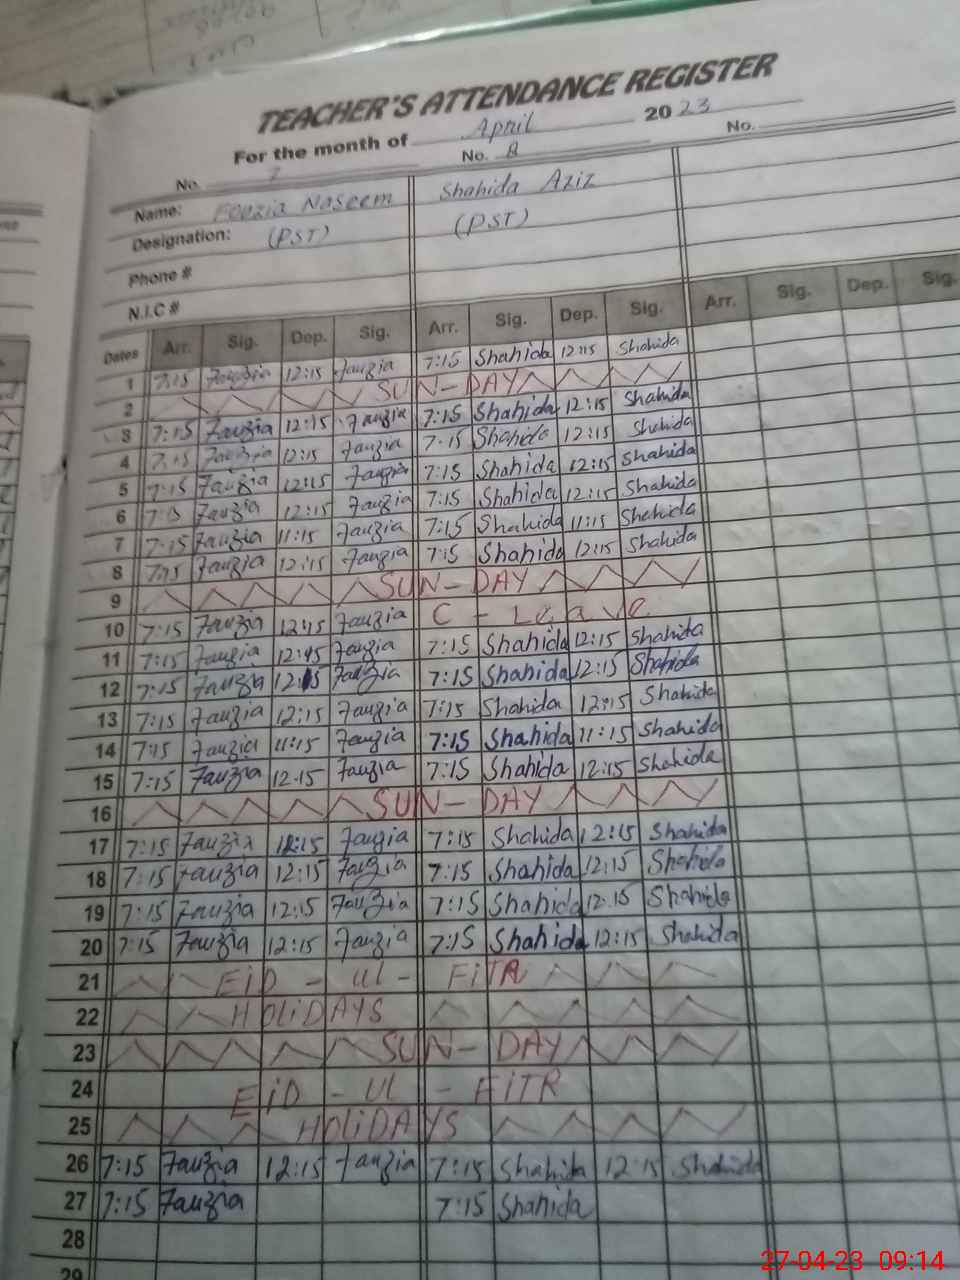 TEACHER'S ATTENDANCE REGISTER
For the month of April 2023
No. 7 No. 8 No.
Name: Fouzia Naseem Shahida Aziz
Designation: (PST) (PST)
Phone #
N.I.C #
Dates Arr. Sig. Dep. Sig. Arr. Sig. Dep. Sig. Arr. Sig. Dep. Sig.
1 7:15 Fauzia 12:15 Fauzia 7:15 Shahida 12:15 Shahida
2 SUN-DAY
3 7:15 Fauzia 12:15 Fauzia 7:15 Shahida 12:15 Shahida
4 7:15 Fauzia 12:15 Fauzia 7:15 Shahida 12:15 Shahida
5 7:15 Fauzia 12:15 Fauzia 7:15 Shahida 12:15 Shahida
6 7:15 Fauzia 12:15 Fauzia 7:15 Shahida 12:15 Shahida
7 7:15 Fauzia 11:15 Fauzia 7:15 Shahida 11:15 Shahida
8 7:15 Fauzia 12:15 Fauzia 7:15 Shahida 12:15 Shahida
9 SUN-DAY
10 7:15 Fauzia 12:15 Fauzia C - Leave
11 7:15 Fauzia 12:15 Fauzia 7:15 Shahida 12:15 Shahida
12 7:15 Fauzia 12:15 Fauzia 7:15 Shahida 12:15 Shahida
13 7:15 Fauzia 12:15 Fauzia 7:15 Shahida 12:15 Shahida
14 7:15 Fauzia 11:15 Fauzia 7:15 Shahida 11:15 Shahida
15 7:15 Fauzia 12:15 Fauzia 7:15 Shahida 12:15 Shahida
16 SUN-DAY
17 7:15 Fauzia 12:15 Fauzia 7:15 Shahida 12:15 Shahida
18 7:15 Fauzia 12:15 Fauzia 7:15 Shahida 12:15 Shahida
19 7:15 Fauzia 12:15 Fauzia 7:15 Shahida 12:15 Shahida
20 7:15 Fauzia 12:15 Fauzia 7:15 Shahida 12:15 Shahida
21 EID - UL - FITR
22 HOLIDAYS
23 SUN-DAY
24 EID - UL - FITR
25 HOLIDAYS
26 7:15 Fauzia 12:15 Fauzia 7:15 Shahida 12:15 Shahida
27 7:15 Fauzia 7:15 Shahida
28
29
27-04-23 09:14